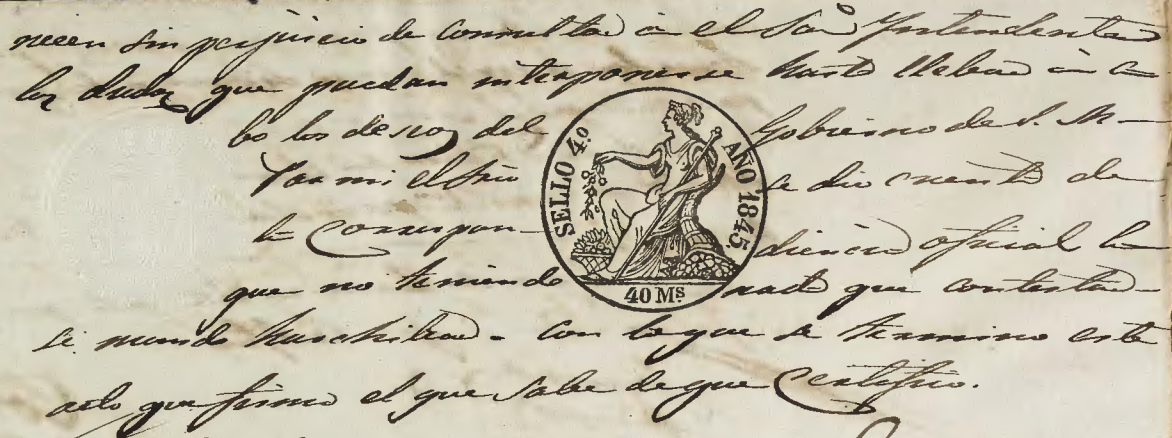 necen sin perjuicio de consultar á el Sor Yntendente
las dudas que puedan interponerse hasta llebar á ca
bo los deseos del Gobierno de S. M
SELLO 4.º AÑO 1845.
40 Ms
Por mi el Srio se dio cuenta de
la correspondencia oficial la
que no teniendo nada que contestar
se mando harchibar. Con lo que se termino este
acto que firmo el que sabe de que Certifico.